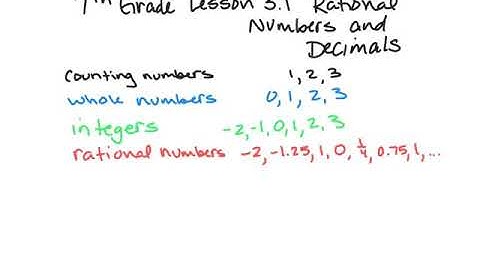 7th Grade Lesson 3.1 Rational
Numbers and
Decimals
counting numbers 1, 2, 3
whole numbers 0, 1, 2, 3
integers -2, -1, 0, 1, 2, 3
rational numbers -2, -1.25, 1, 0, 1/4, 0.75, 1, ...